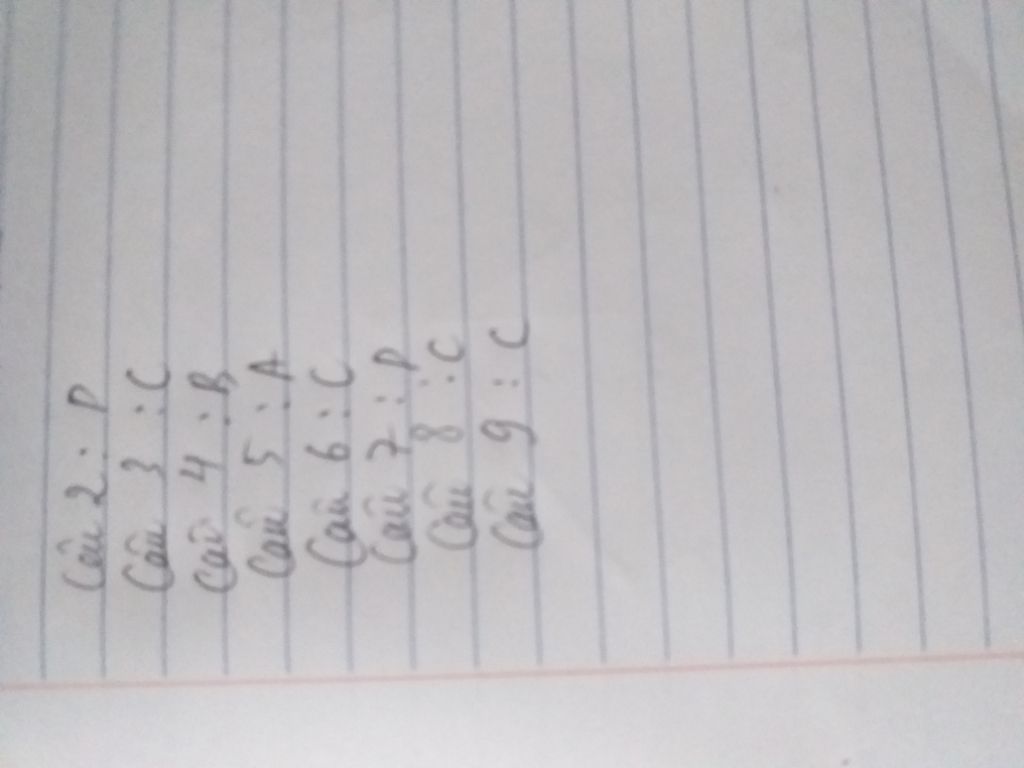 Câu 2 : D
Câu 3 : C
Câu 4 : B
Câu 5 : A
Câu 6 : C
Câu 7 : D
Câu 8 : C
Câu 9 : C